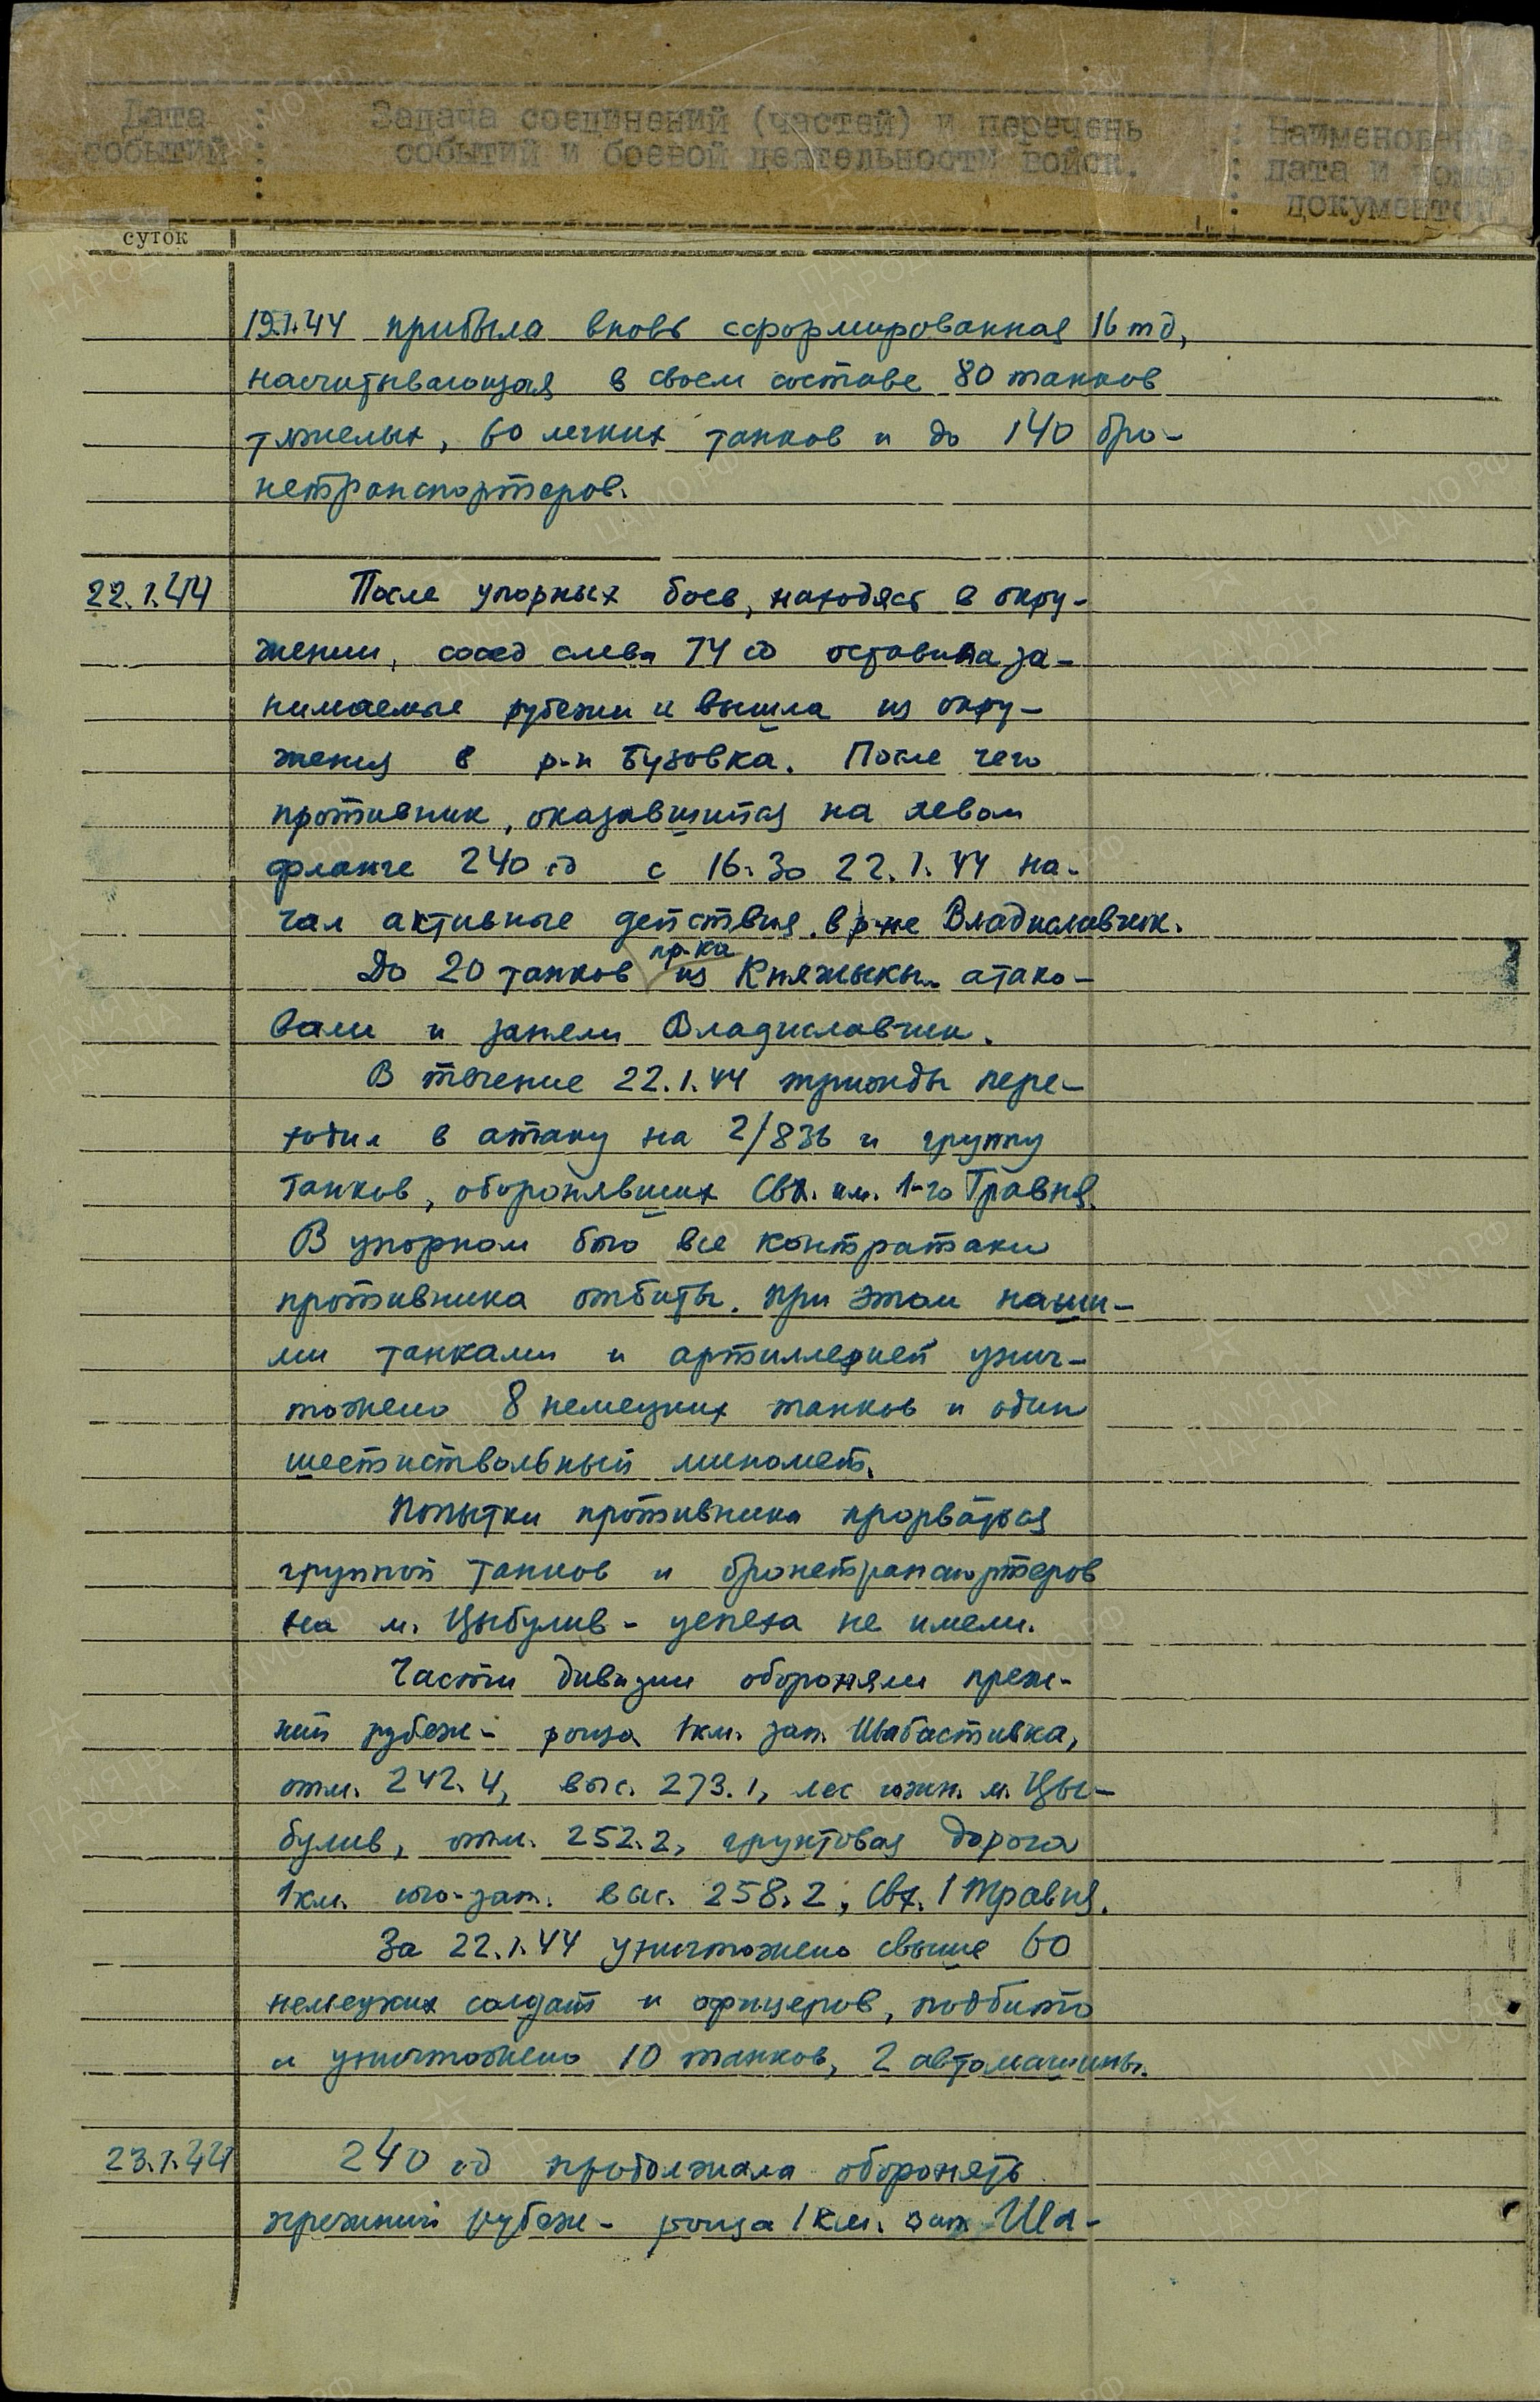 Дата : Задача соединений (частей) и перечень : Наименование,
событий : событий и боевой деятельности войск. : дата и номер
: : документов.
суток
19.1.44 прибыла вновь сформированная 16 тд,
насчитывающая в своем составе 80 танков
тяжелых, 60 легких танков и до 140 бро-
нетранспортеров.
22.1.44 После упорных боев, находясь в окру-
жении, сосед слева 74 сд оставила за-
нимаемые рубежи и вышла из окру-
жения в р-н Бузовка. После чего
противник, оказавшийся на левом
фланге 240 сд с 16.30 22.1.44 на-
чал активные действия в р-не Владиславчик.
До 20 танков пр-ка из Княжыкы атако-
вали и заняли Владиславчик.
В течение 22.1.44 трижды пере-
ходил в атаку на 2/836 и группу
танков, оборонявших Свх. им. 1-го Травня.
В упорном бою все контратаки
противника отбиты. При этом наши-
ми танками и артиллерией унич-
тожено 8 немецких танков и один
шестиствольный миномет.
Попытки противника прорваться
группой танков и бронетранспортеров
на м. Цыбулив - успеха не имели.
Части дивизии обороняли преж-
ний рубеж - роща 1 км. зап. Шабастивка,
отм. 242.4, выс. 273.1, лес южн. м. Цы-
булив, отм. 252.2, грунтовая дорога
1 км. юго-зап. выс. 258.2, Свх. 1 Травня.
За 22.1.44 уничтожено свыше 60
немецких солдат и офицеров, подбито
и уничтожено 10 танков, 2 автомашины.
23.1.44 240 сд продолжала оборонять
прежний рубеж - роща 1 км. зап Ша-